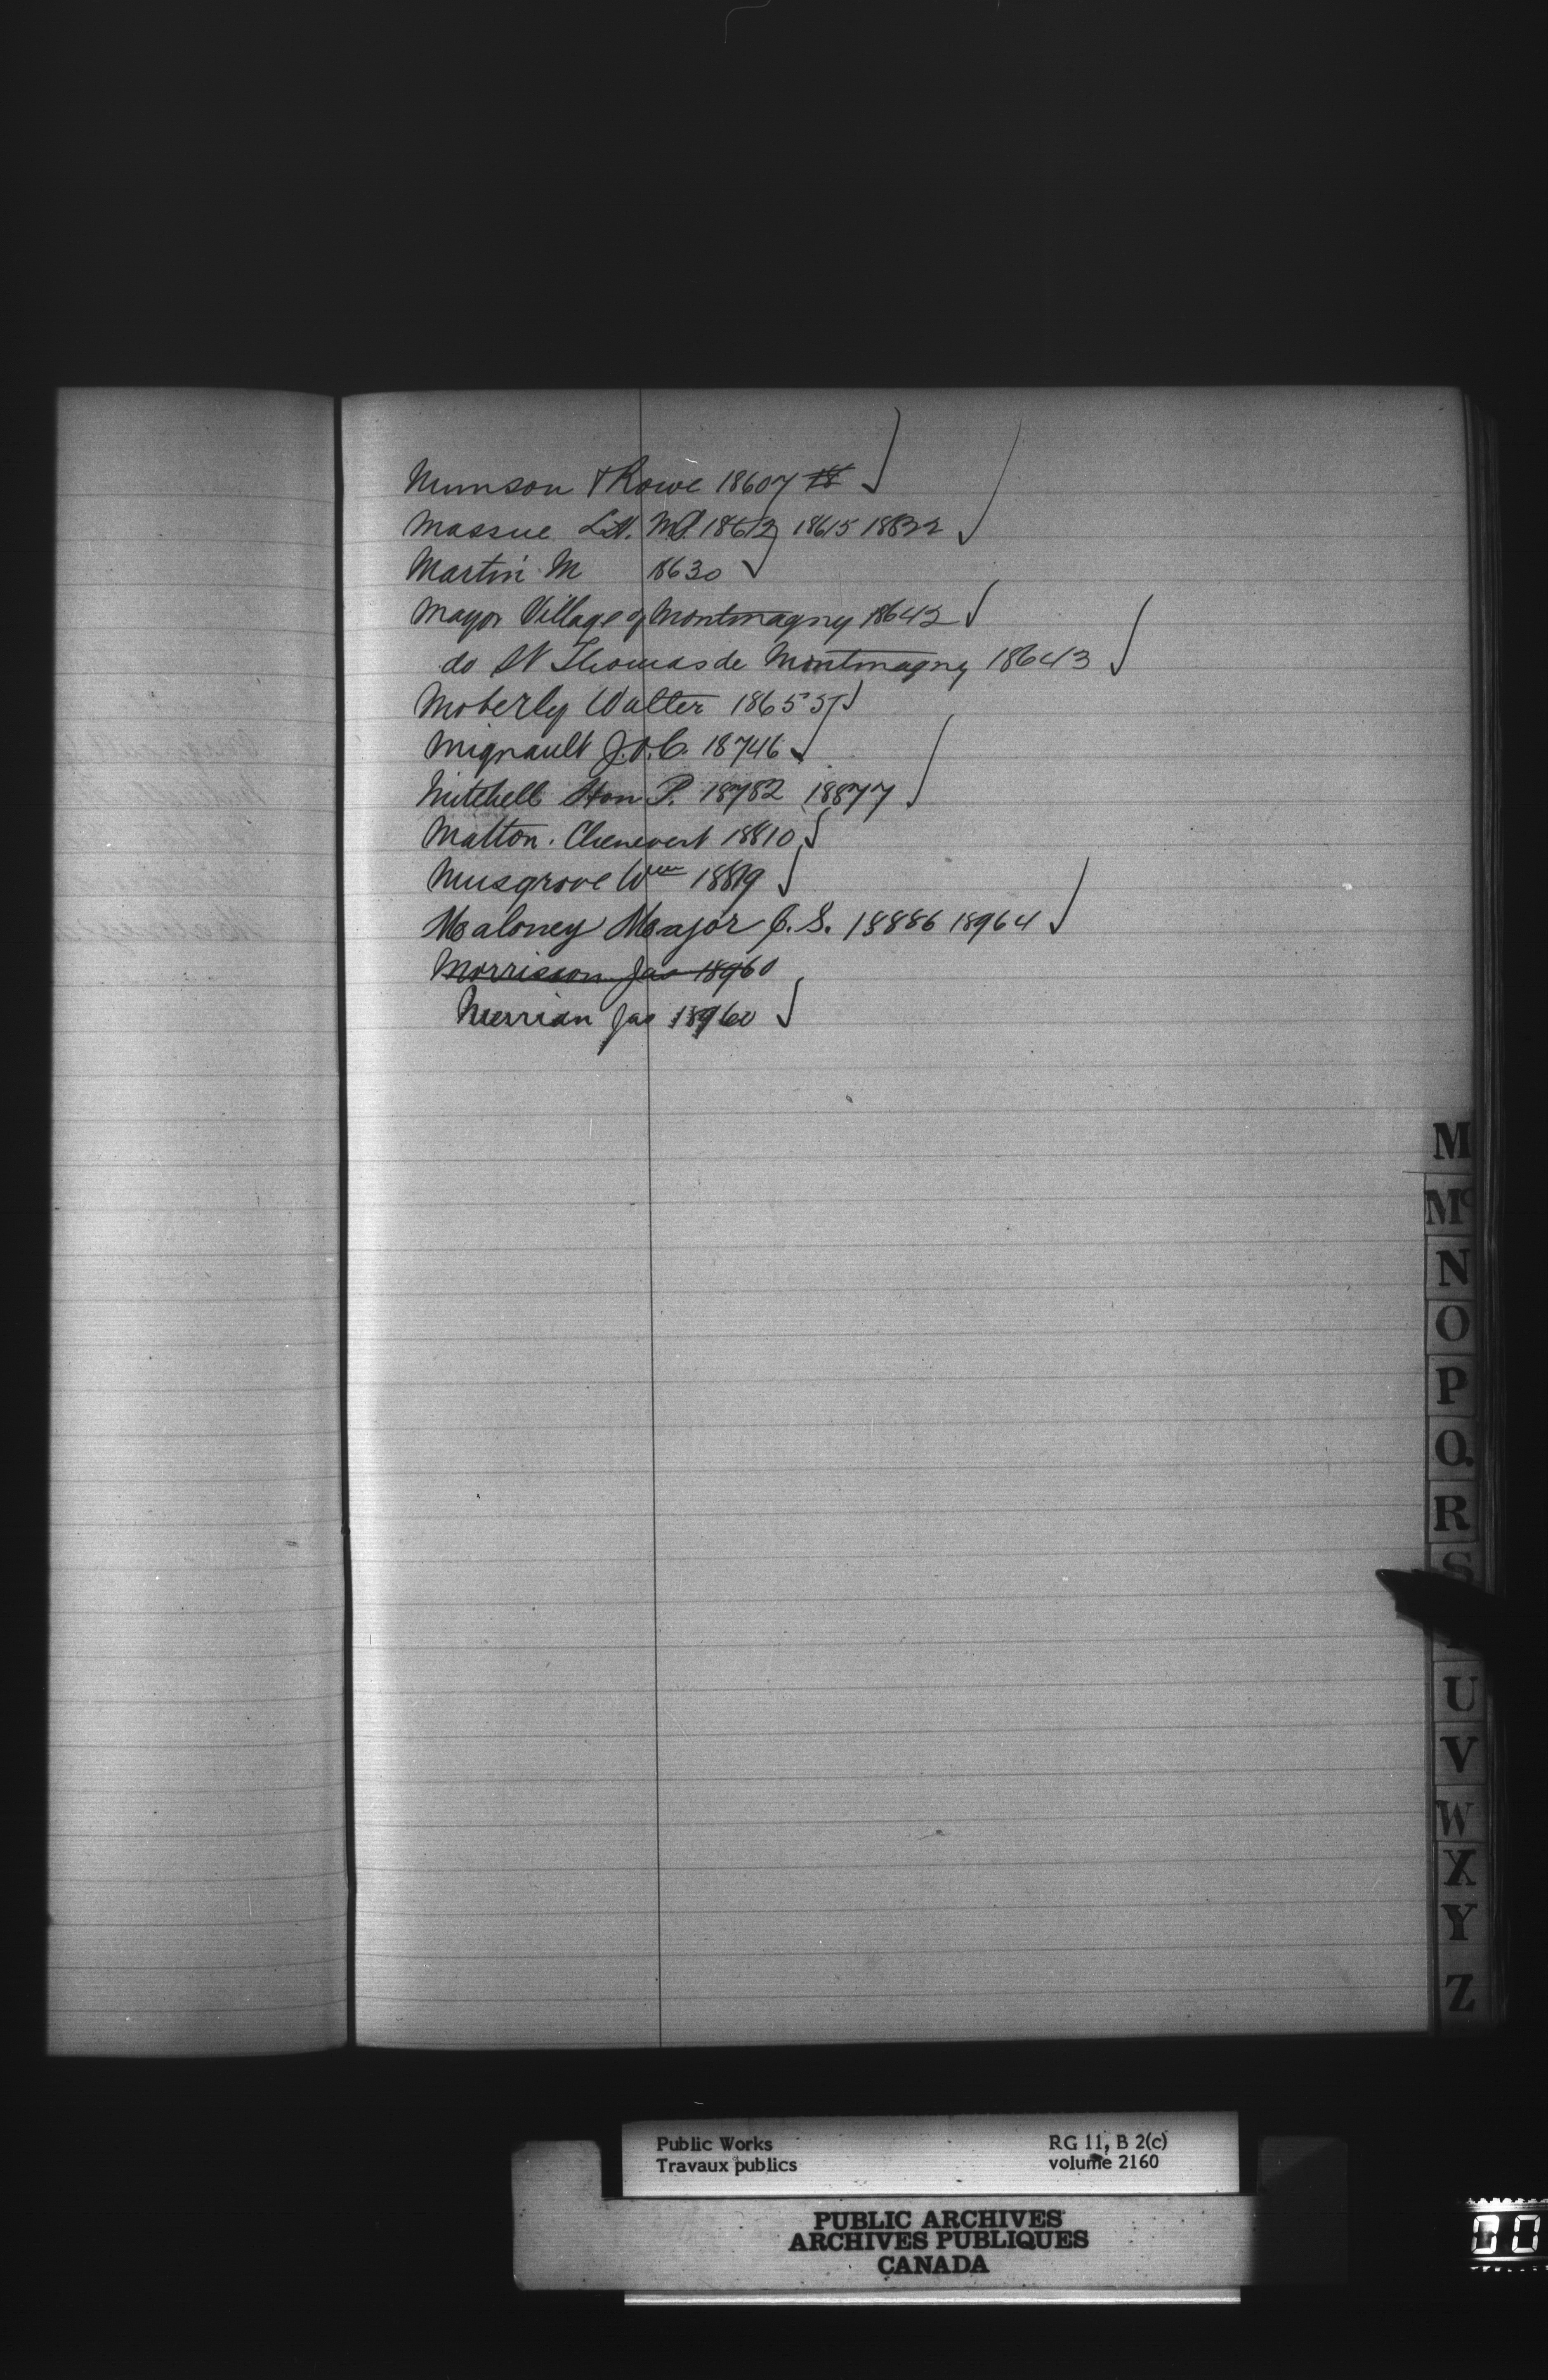 Munson & Rowe 18607 18
Massue L.H. M.P. 18612 18615 18822
Martin M 18630
Mayor Village of Montmagny 18642
do St Thomas de Montmagny 18643
Moberly Walter 18655
Mignault J.O.C. 18746
Mitchell Hon P. 18782 18877
Matton. Chenevert 18810
Musgrove Wm 18819
Maloney Major C.S. 18886 18964
Morrison Jas 18960
Merrian Jas 18960
M
Mc
N
O
P
Q.
R
S
U
V
W
X
Y
Z
Public Works RG 11, B 2(c)
Travaux publics volume 2160
PUBLIC ARCHIVES
ARCHIVES PUBLIQUES
CANADA
00